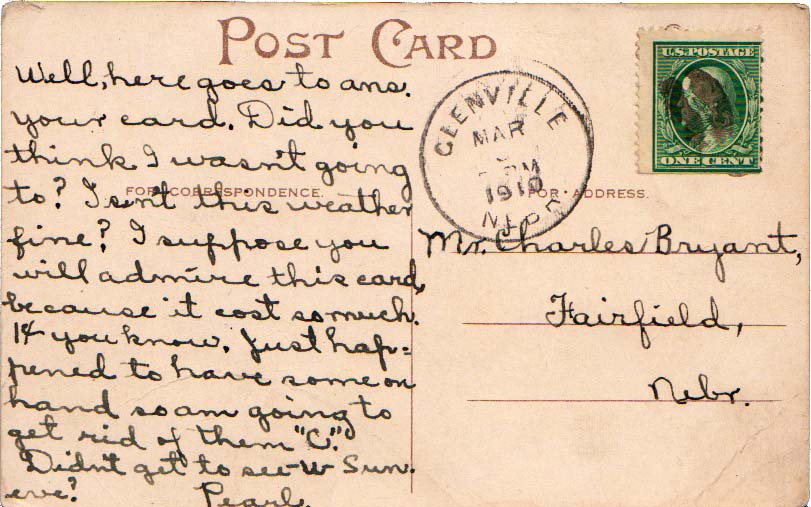 POST CARD
Well, here goes to ans.
your card. Did you
think I wasn't going
to? Isn't this weather
fine? I suppose you
will admire this card,
because it cost so much.
1¢ you know. Just hap=
pened to have some on
hand so am going to
get rid of them "C".
Didn't get to see U Sun.
eve? Pearl.
FOR CORRESPONDENCE.
GLENVILLE
MAR
1910
NEBR
U.S. POSTAGE
ONE CENT
FOR ADDRESS.
Mr. Charles Bryant,
Fairfield,
Nebr.